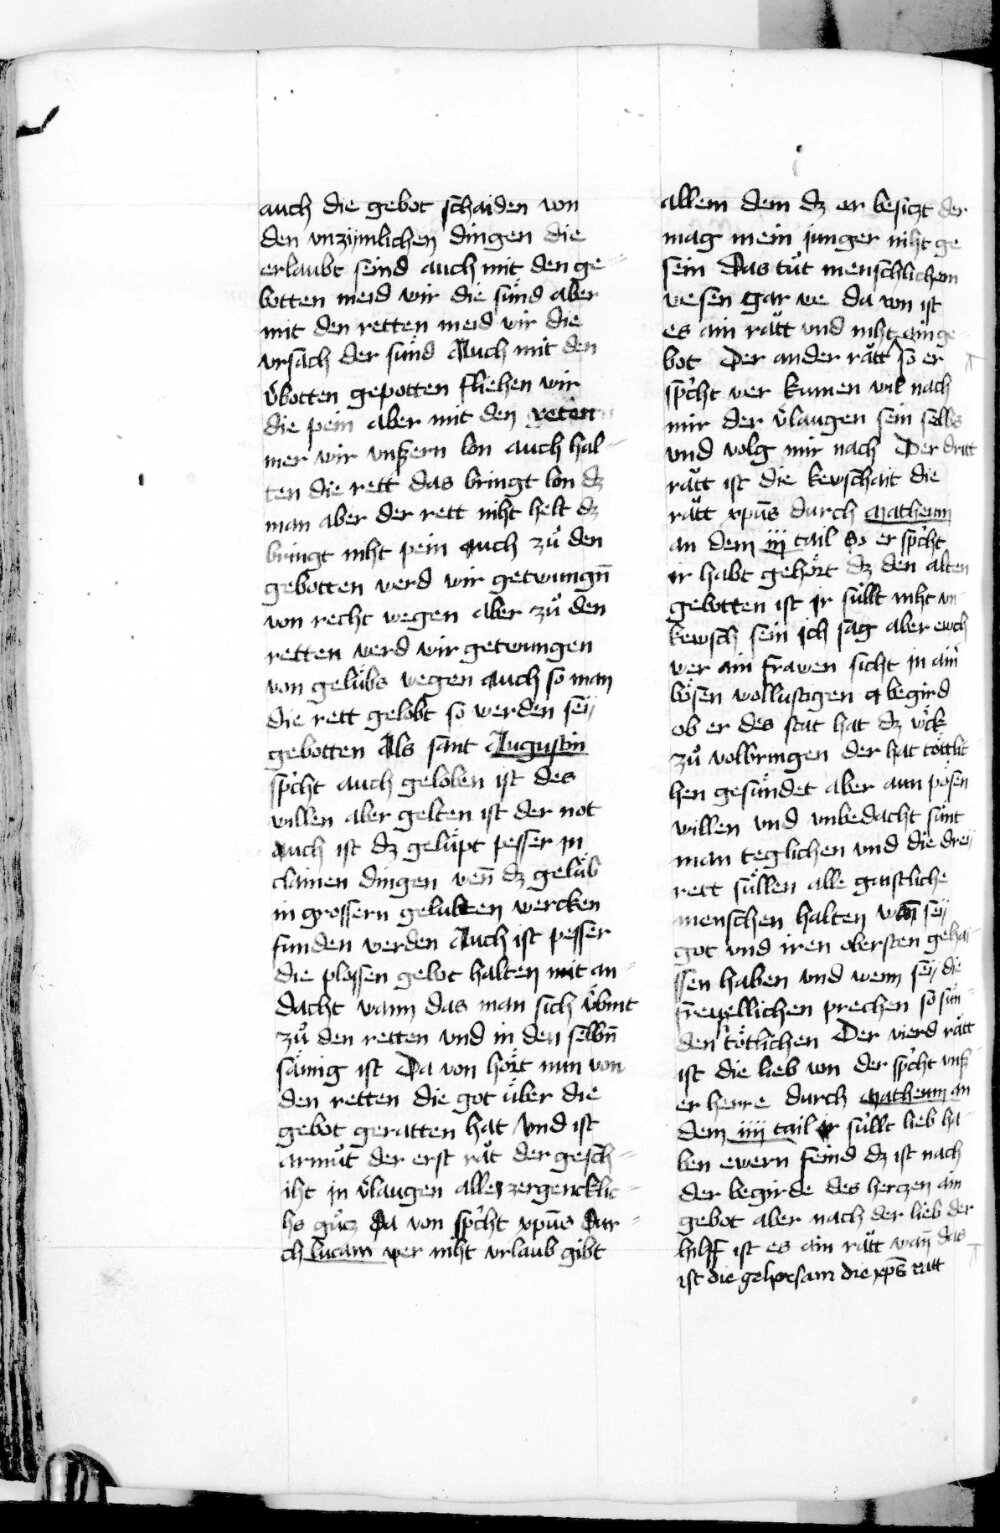 auch die gebot schaiden von
den vnzijmlichen dingen die
erlaubt seind auch mit den ge=
botten meid wir die sünd aber
mit den retten meid wir die
vrsach der sünd Auch mit den
v̉botten gepotten fliehen wir
die pein aber mit den reten
mer wir vnßern lon auch hal=
ten die rett das bringt lon dz
man aber der rett niht helt dz
bringt niht pein auch zů den
gebotten werd wir getwungn̄
von recht wegen aber zů den
retten werd wir getwungen
von gelübs wegen auch so man
die rett gelobt so werden seij
gebotten Als sant Augustin
sp̉cht auch geloben ist des
willen aber gelten ist der not
auch ist dz gelüpt pesser in
clainen dingen wen̄ dz gelüb
in grossern gelubten wercken
funden werden Auch ist pesser
die plossen gebot halten mit an=
dacht wann das man sich v̈bint
zů den retten vnd in den selbn̄
säinig ist Da von hört nun von
den retten die got über die
gebot geratten hat Vnd ist
armůt der erst rat der gesch=
iht in v̉laugen alles zergencklic=
hs gůcz Da von sp̉cht xp̄us Dur=
ch lucam wer niht vrlaub gibt
allem dem dz er besiczt der
mag mein junger niht ge
sein Das tůt menschlichem
wesen gar we da von ist
es ain rätt vnd niht ain ge
bot Der ander rätt so er
sp̉cht wer kumen wil nach
mir der v̉laugen sein selbs
vnd volg mir nach Der dritt
rätt ist die kewschait die
rätt xp̄us durch matheum
an dem iij tail So er sp̉cht
ir habt gehört dz den alten
gebotten ist Ir süllt niht vn=
kewsch sein ich sag aber ewch
wer ain frawen sicht in ain̄
bösen wollustigen begird
ob er des stat hat dz wöck
zů volbringen der hat töttlic
hen gesündet aber aun pösen
willen vnd vnbedacht sünt
man teglichen vnd die dreij
rett süllen alle gaistliche
menschen halten wan̄ seij
got vnd iren obersten gehai=
ssen haben vnd wenn seij die
frewellichen prechen so sün=
den tötlichen Der vierd rätt
ist die lieb von der sp̉cht vnß
er herre durch matheum an
dem iiij tail ir süllt lieb ha=
ben ewern feind dz ist nach
der begirde des herczen ain
gebot aber nach der lieb der
hilff ist es ain rätt wan̄ das
ist die gehorsam die xp̄s ratt